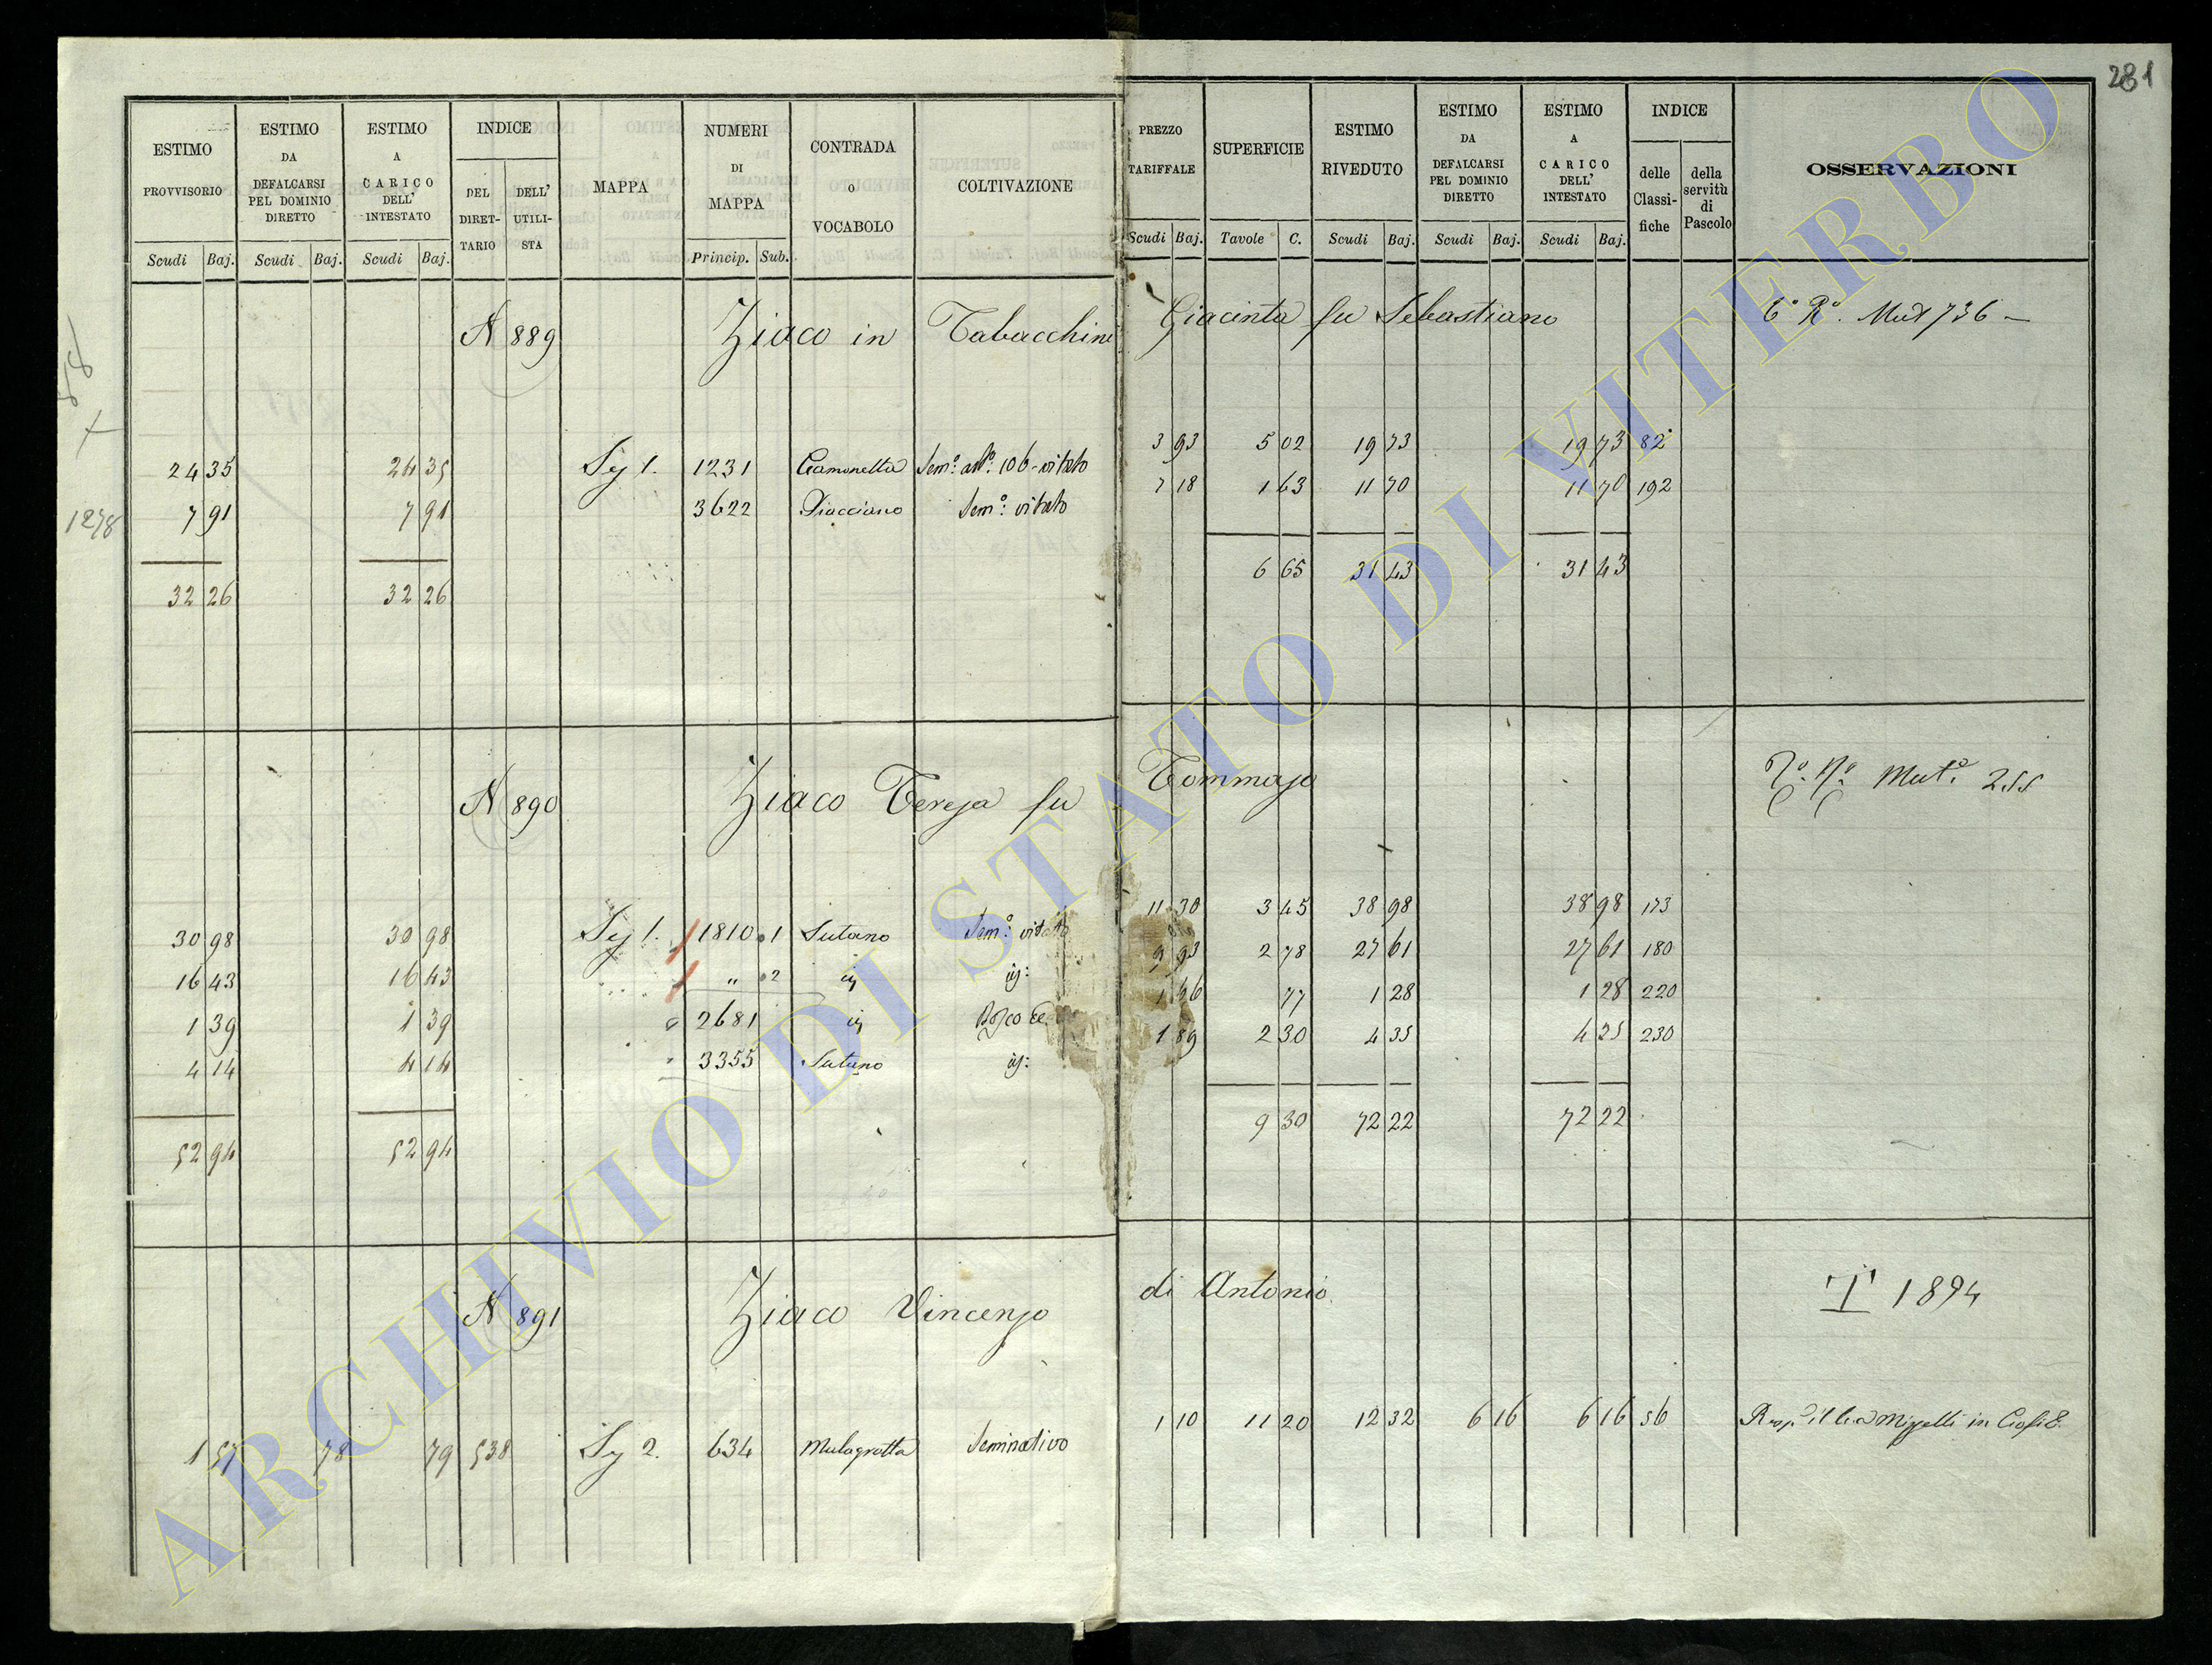 281
ESTIMO PROVVISORIO Scudi Baj.
ESTIMO DA DEFALCARSI PEL DOMINIO DIRETTO Scudi Baj.
ESTIMO A CARICO DELL' INTESTATO Scudi Baj.
INDICE DEL DIRET- TARIO DELL' UTILI- STA
MAPPA
NUMERI DI MAPPA Princip. Sub.
CONTRADA o VOCABOLO
COLTIVAZIONE
PREZZO TARIFFALE Scudi Baj.
SUPERFICIE Tavole C.
ESTIMO RIVEDUTO Scudi Baj.
ESTIMO DA DEFALCARSI PEL DOMINIO DIRETTO Scudi Baj.
ESTIMO A CARICO DELL' INTESTATO Scudi Baj.
INDICE delle Classi- fiche della servitù di Pascolo
OSSERVAZIONI
N 889 Ziaco in Tabacchini Giacinta fu Sebastiano Mut 736
24 35 24 35 Sez 1. 1231 Camonetta Sem.o 106 vitato 3 93 5 02 19 73 19 73 82
1278 7 91 7 91 3622 Piacciano Sem.o vitato 7 18 1 63 11 70 11 70 192
32 26 32 26 6 65 31 43 31 43
N 890 Ziaco Teresa fu Tommaso Mut.e 255
30 98 30 98 Sez 1. 1810 1 Sutano Sem.o vitato 11 30 3 45 38 98 38 98 173
16 43 16 43 " 2 9 93 2 78 27 61 27 61 180
1 39 1 39 2681 Bosco 77 1 28 1 28 220
4 14 4 14 3355 Sutano 1 89 2 30 4 35 4 25 230
52 94 52 94 9 30 72 22 72 22
N 891 Ziaco Vincenzo di Antonio T 1894
1 57 78 79 538 Sez 2. 634 Mulagrotta Seminativo 1 10 11 20 12 32 6 16 6 16 56
ARCHIVIO DI STATO DI VITERBO